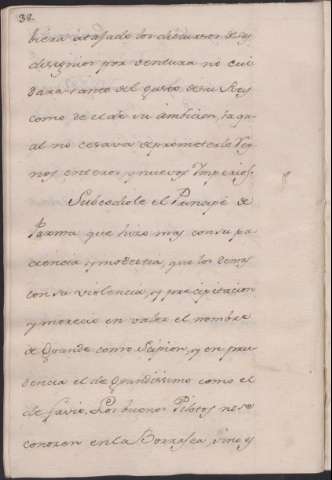 38.
biera atajado los discursos de sus
designios por ventura no cui
dara tanto del gusto de su Rey
como de el de su ambicion, la qu
al no cesava de prometerle Rey
nos enteros, y nuevos Imperios.
Subcediole el Principe de
Parma que hizo mas con su pa
ciencia y modestia, que los demas
con su violencia, y precipitacion
y merecio en valor el nombre
de Grande como Scipion, y en pru
dencia el de Grandissimo como el
de Favio. Los buenos Pilotos no se
conocen en la Borrasca sino